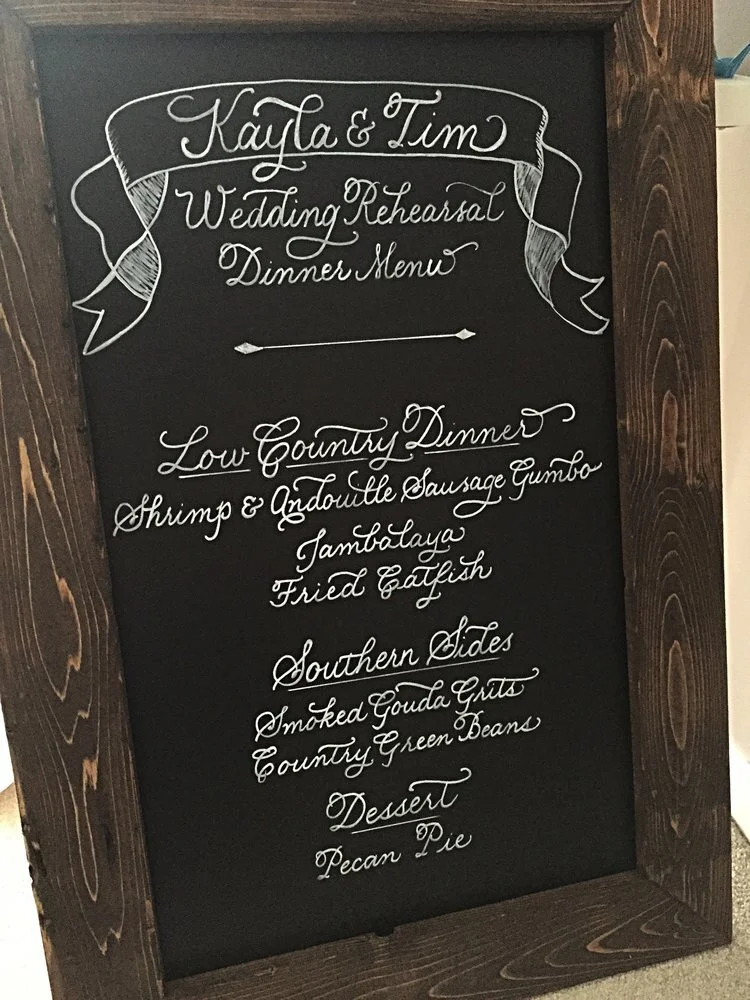 Kayla & Tim
Wedding Rehearsal
Dinner Menu
Low Country Dinner
Shrimp & Andouille Sausage Gumbo
Jambalaya
Fried Catfish
Southern Sides
Smoked Gouda Grits
Country Green Beans
Dessert
Pecan Pie